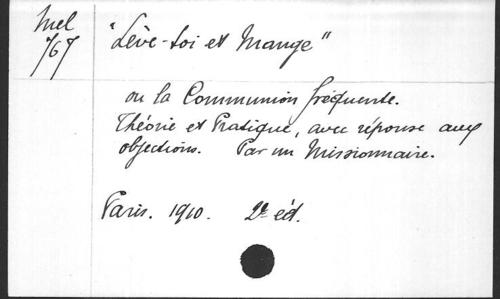 Mel
767
"Lève-toi et Mange"
ou la Communion fréquente.
Théorie et Pratique, avec réponse aux
objections. Par un Missionnaire.
Paris. 1910. 2e éd.